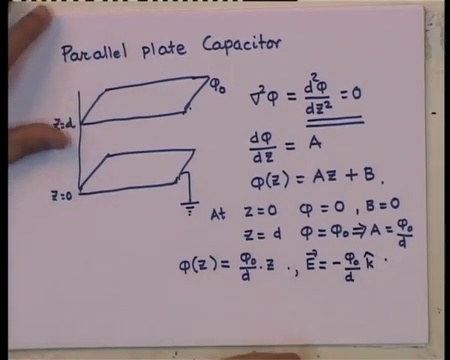 Parallel plate Capacitor
φ₀
z=d
z=0
∇²φ = d²φ/dz² = 0
dφ/dz = A
φ(z) = Az + B.
At z=0 φ=0, B=0
z=d φ=φ₀ ⇒ A = φ₀/d
φ(z) = φ₀/d . z ., E⃗ = -φ₀/d k̂ .